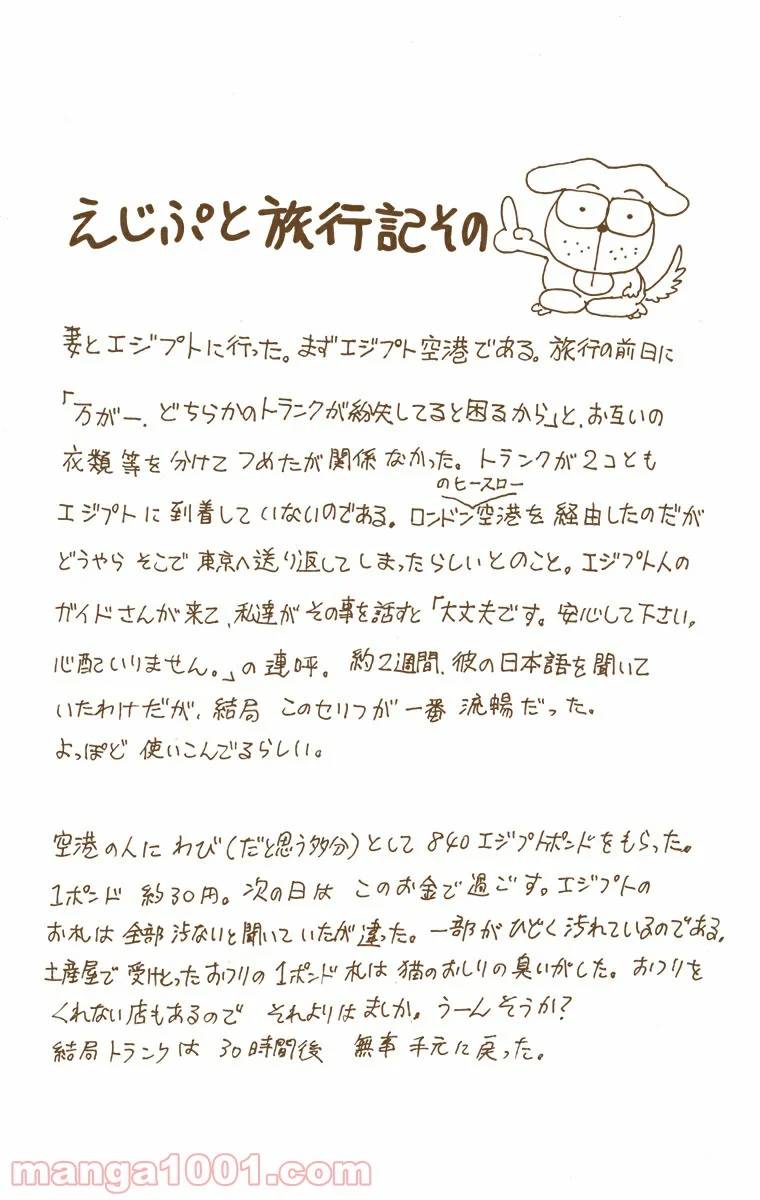 えじぷと旅行記その
妻とエジプトに行った。まずエジプト空港である。旅行の前日に
「万が一、どちらかのトランクが紛失してると困るから」と、お互いの
衣類等を分けてつめたが関係なかった。トランクが2コとも
のヒースロー
エジプトに到着していないのである。ロンドン空港を経由したのだが
どうやらそこで東京へ送り返してしまったらしいとのこと。エジプト人の
ガイドさんが来て、私達がその事を話すと「大丈夫です。安心して下さい。
心配いりません。」の連呼。約2週間、彼の日本語を聞いて
いたわけだが、結局このセリフが一番流暢だった。
よっぽど使いこんでるらしい。
空港の人にわび(だと思う多分)として840エジプトポンドをもらった。
1ポンド約30円。次の日はこのお金で過ごす。エジプトの
お札は全部汚ないと聞いていたが違った。一部がひどく汚れているのである。
土産屋で受けとったおつりの1ポンド札は猫のおしりの臭いがした。おつりを
くれない店もあるのでそれよりはましか。うーんそうか?
結局トランクは30時間後無事手元に戻った。
manga1001.com